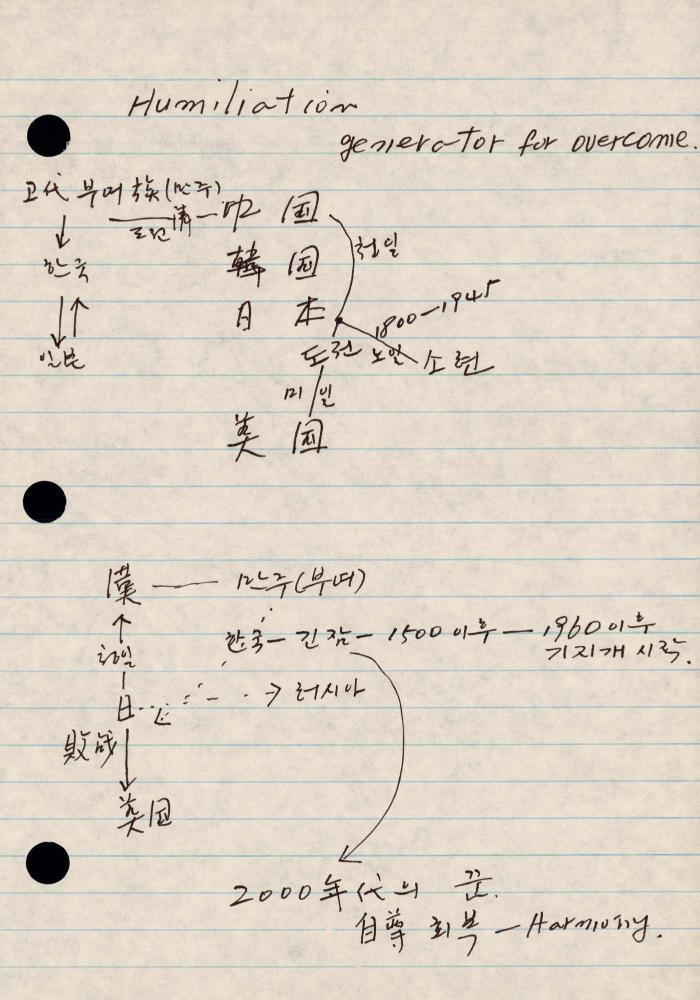 Humiliation
generator for overcome.
고代 부여族(만주)
도전 淸 — 中国
한국
韓国
청일
日本
1800—1945
일본
도전 노일 소련
미일
美国
漢 — 만주(부여)
한국 — 긴 잠 — 1500 이후 — 1960 이후
기지개 시작.
청일
日 → 러시아
敗戰
美国
2000年代의 꿈.
自尊 회복 — Harmony.